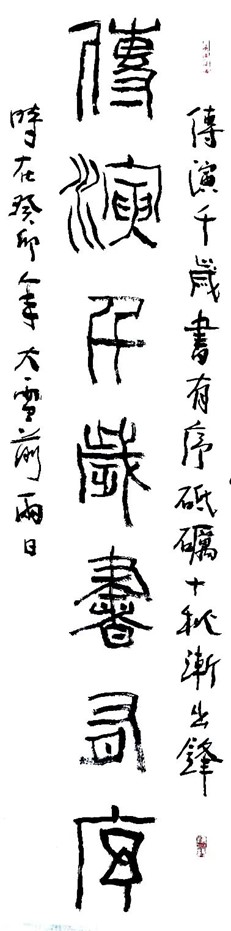 傳演千歲書有序砥礪十秋漸出鋒
傳演千歲書有序
時在癸卯年大雪前兩日